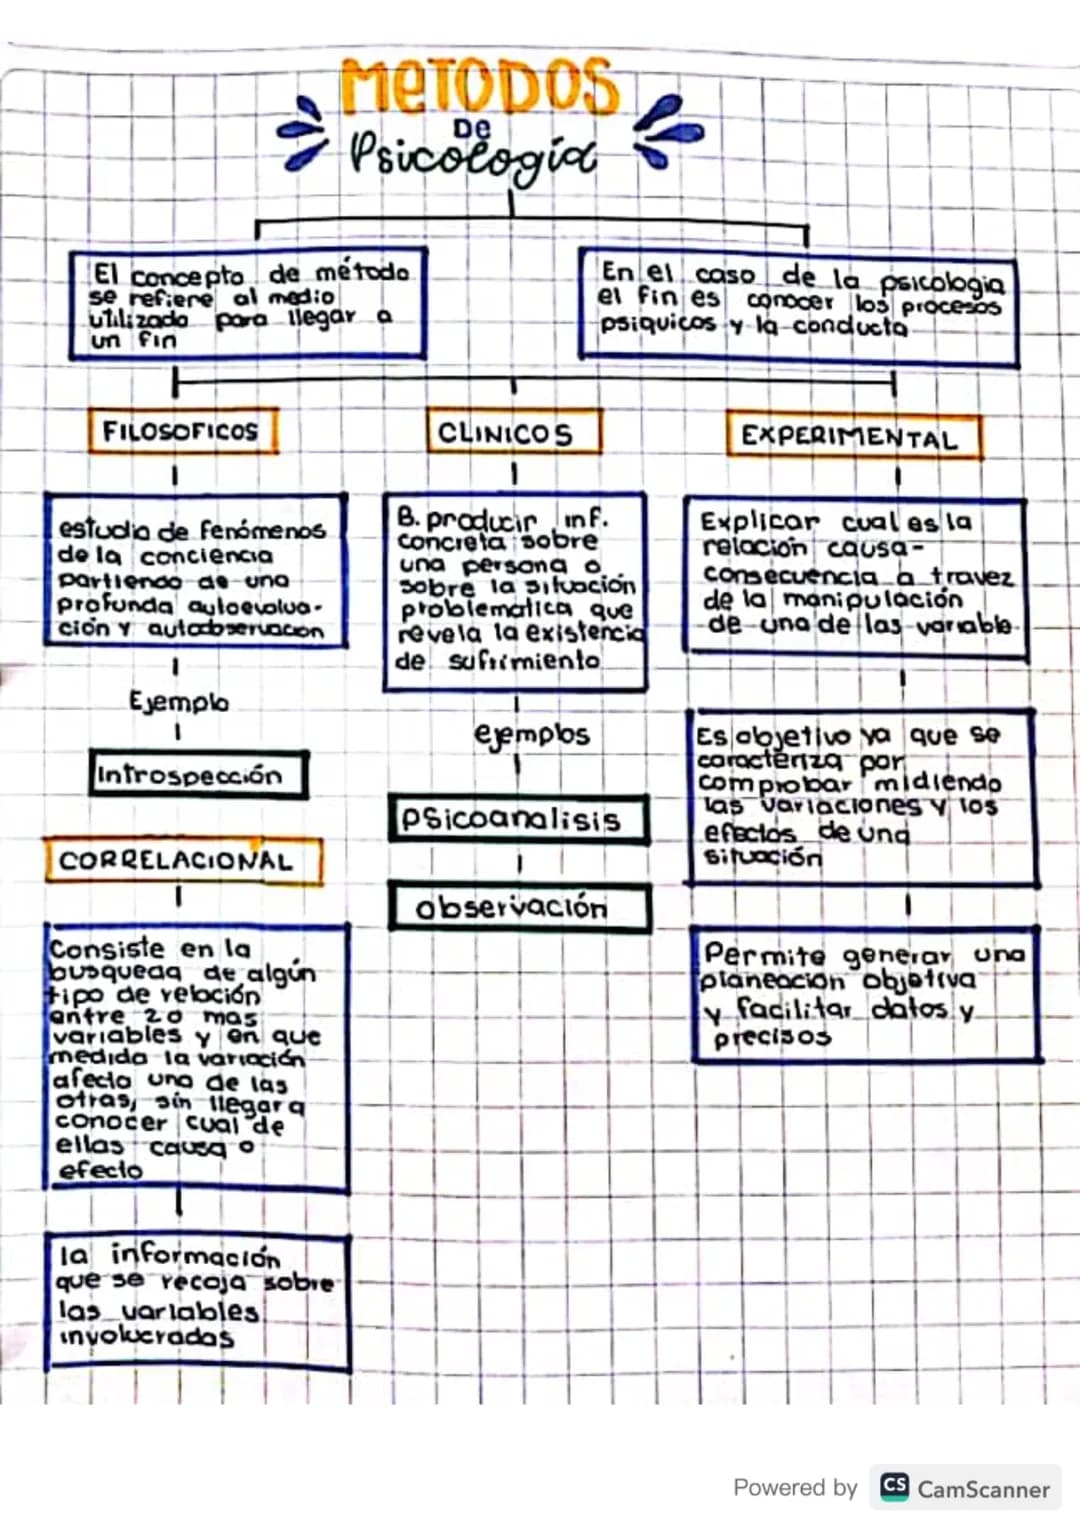 METODOS
DE
Psicología
El concepto de método
se refiere al medio
utilizado para llegar a
un fin
En el caso de la psicologia
el fin es conocer los procesos
psiquicos y la conducta
FILOSOFICOS
estudio de fenómenos
de la conciencia
partiendo de una
profunda autoevalua-
ción y autobservacion
Ejemplo
Introspección
CORRELACIONAL
Consiste en la
busqueda de algún
tipo de relación
entre 2 o mas
variables y en que
medida la variación
afecta una de las
otras, sin llegar a
conocer cual de
ellas causa o
efecto
la información
que se recoja sobre
las variables
involucradas
CLINICOS
B. producir inf.
concreta sobre
una persona o
sobre la situación
problematica que
revela la existencia
de sufrimiento
ejemplos
psicoanalisis
observación
EXPERIMENTAL
Explicar cual es la
relación causa-
consecuencia a travez
de la manipulación
de una de las variable
Es objetivo ya que se
caracteriza por
comprobar midiendo
las variaciones y los
efectos de una
situación
Permite generar una
planeacion objetiva
y facilitar datos y
precisos
Powered by CS CamScanner